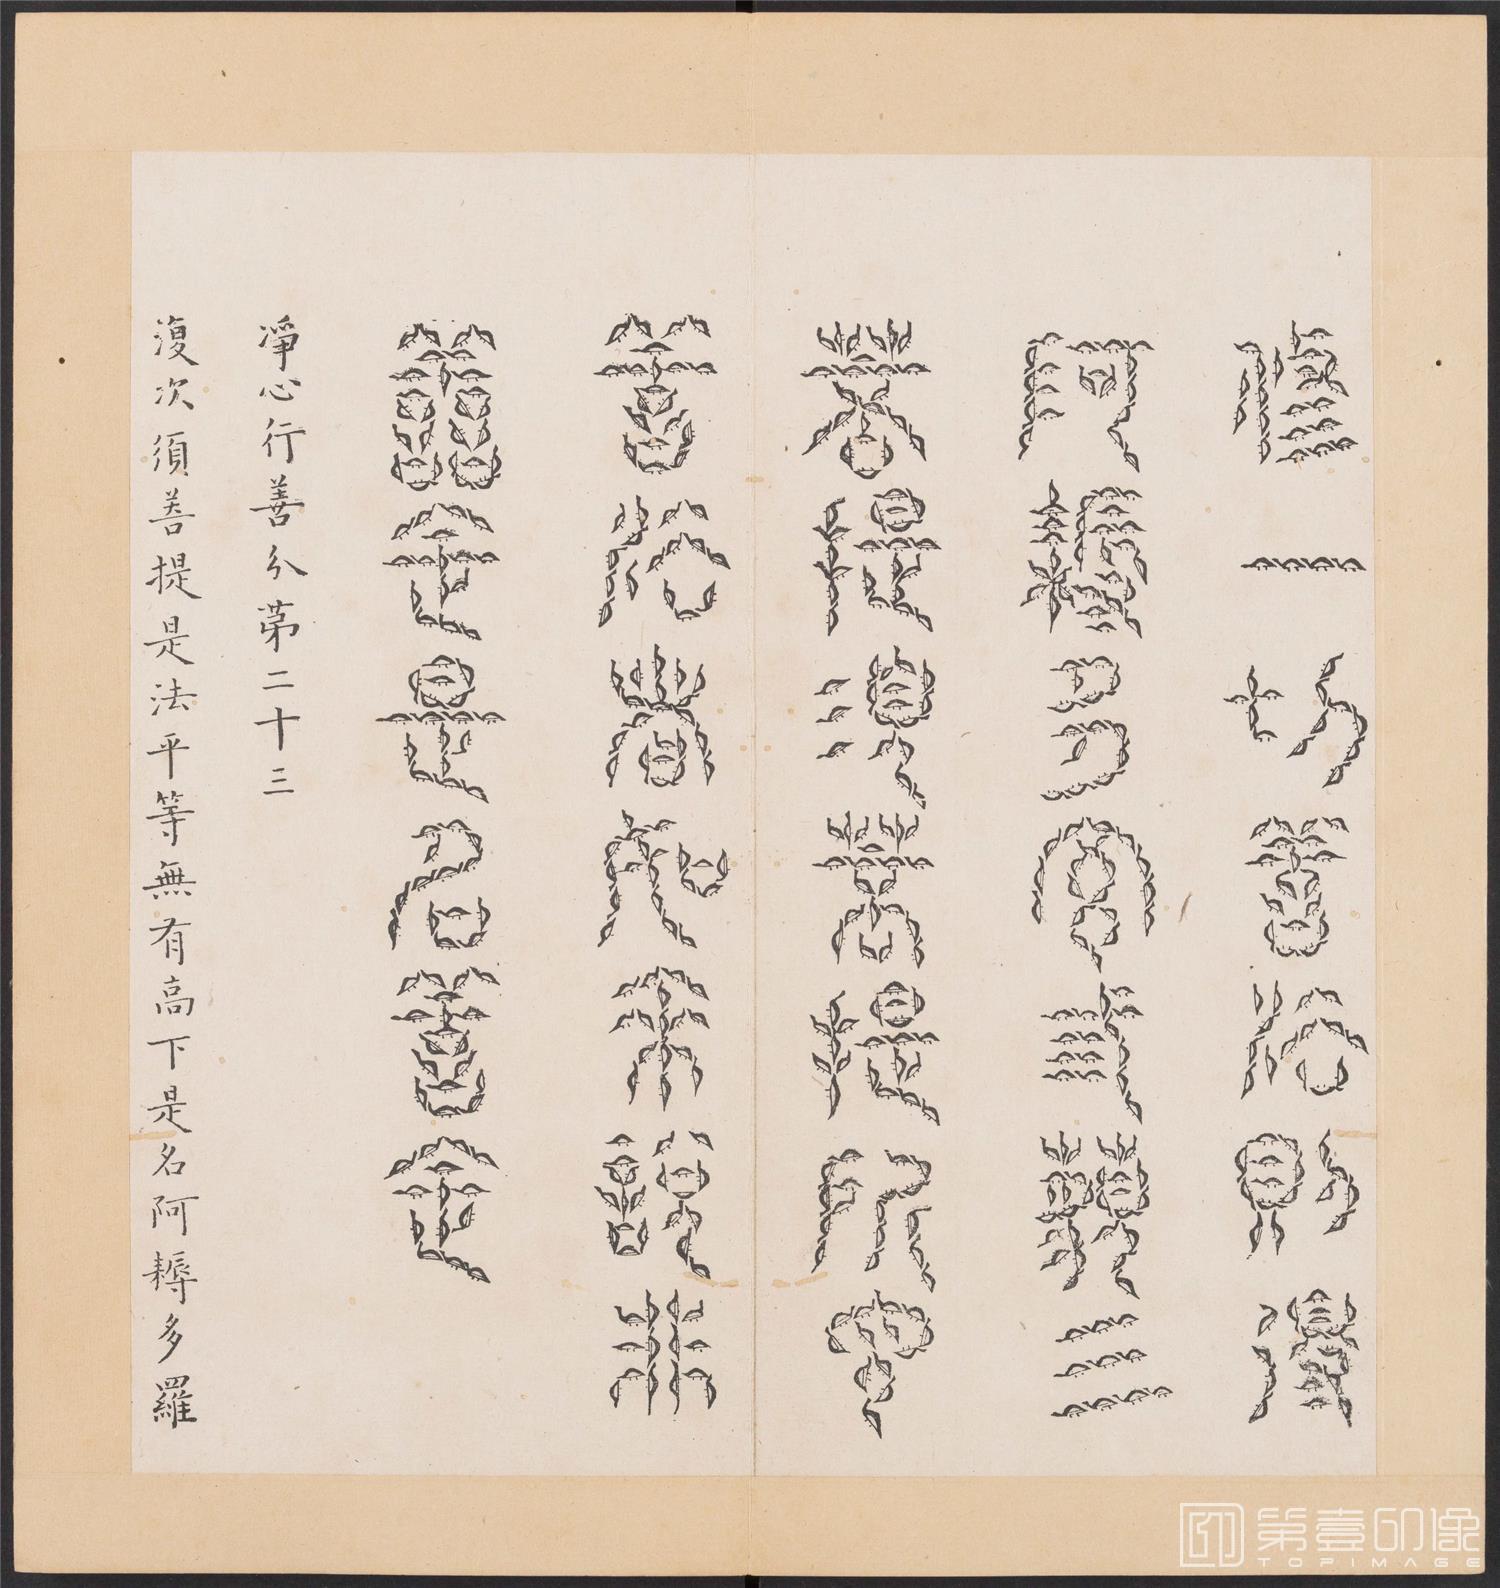 修一切善法則得
阿耨多羅三藐三
菩提須菩提所言
善法者如來說非
善法是名善法
淨心行善分第二十三
復次須菩提是法平等無有高下是名阿耨多羅
第壹印像
TOPIMAGE